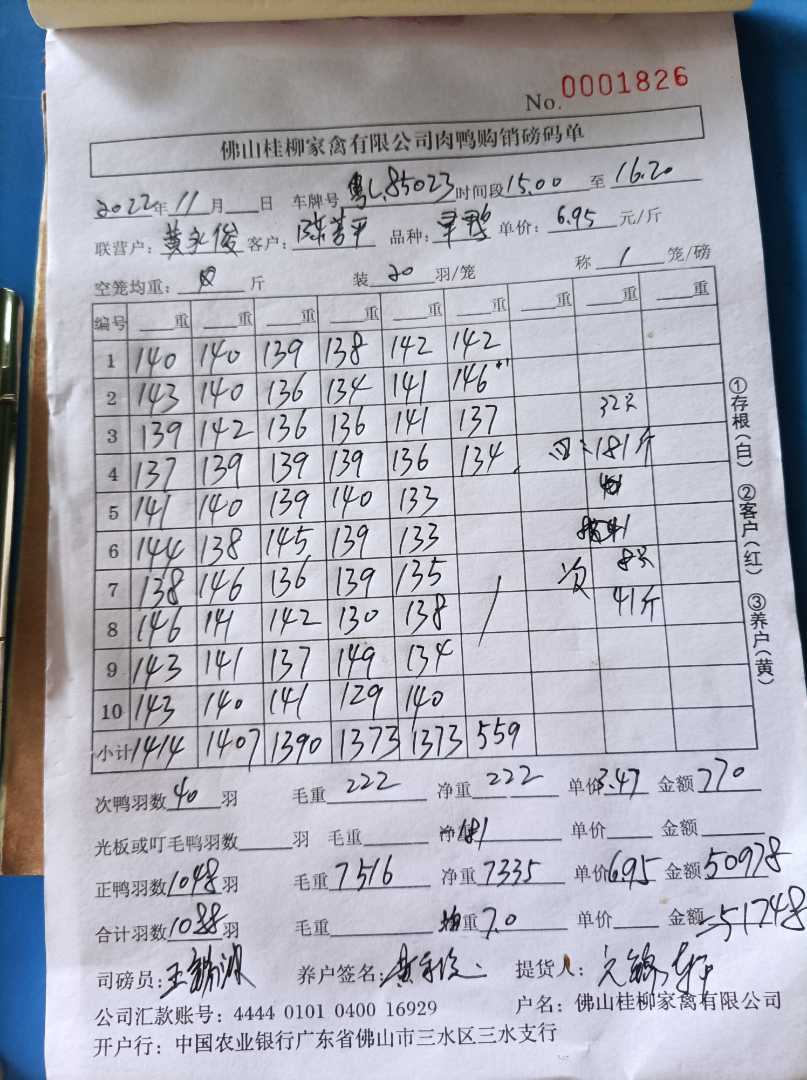 No. 0001826
佛山桂柳家禽有限公司肉鸭购销磅码单
2022年 11 月 日 车牌号 粤L85023 时间段 15.00 至 16.20
联营户: 黄永俊 客户: 陈菩平 品种: 鸭 单价: 6.95 元/斤
空笼均重: 斤 装 20 羽/笼 称 1 笼/磅
编号 重 重 重 重 重 重 重 重 重
1 140 140 139 138 142 142
2 143 140 136 134 141 146 +1
3 139 142 136 136 141 137 32只
4 137 139 139 139 136 134 181斤
5 141 140 139 140 133
6 144 138 145 139 133
7 138 146 136 139 135 次 8只
8 146 141 142 130 138 41斤
9 143 141 137 149 134
10 143 140 141 129 140
小计 1414 1407 1390 1373 1373 559
次鸭羽数 40 羽 毛重 222 净重 222 单价 3.47 金额 770
光板或叮毛鸭羽数 羽 毛重 净重 181 单价 金额
正鸭羽数 1048 羽 毛重 7516 净重 7335 单价 695 金额 50978
合计羽数 1088 羽 毛重 均重 7.0 单价 金额 =51748
司磅员: 王 养户签名: 黄 提货人:
公司汇款账号: 4444 0101 0400 16929 户名: 佛山桂柳家禽有限公司
开户行: 中国农业银行广东省佛山市三水区三水支行
①存根(白) ②客户(红) ③养户(黄)